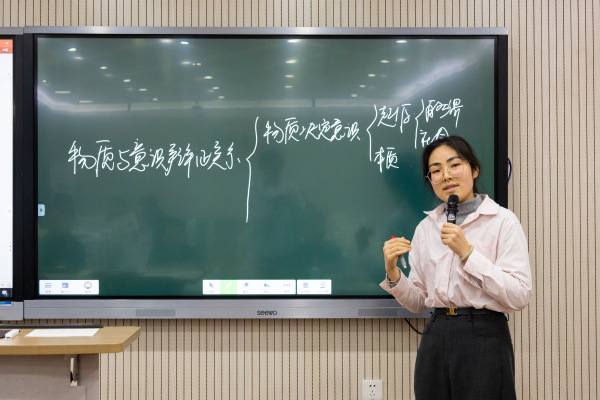 物质与意识辩证关系
物质决定意识
起源
本质
自然界
社会
seewo